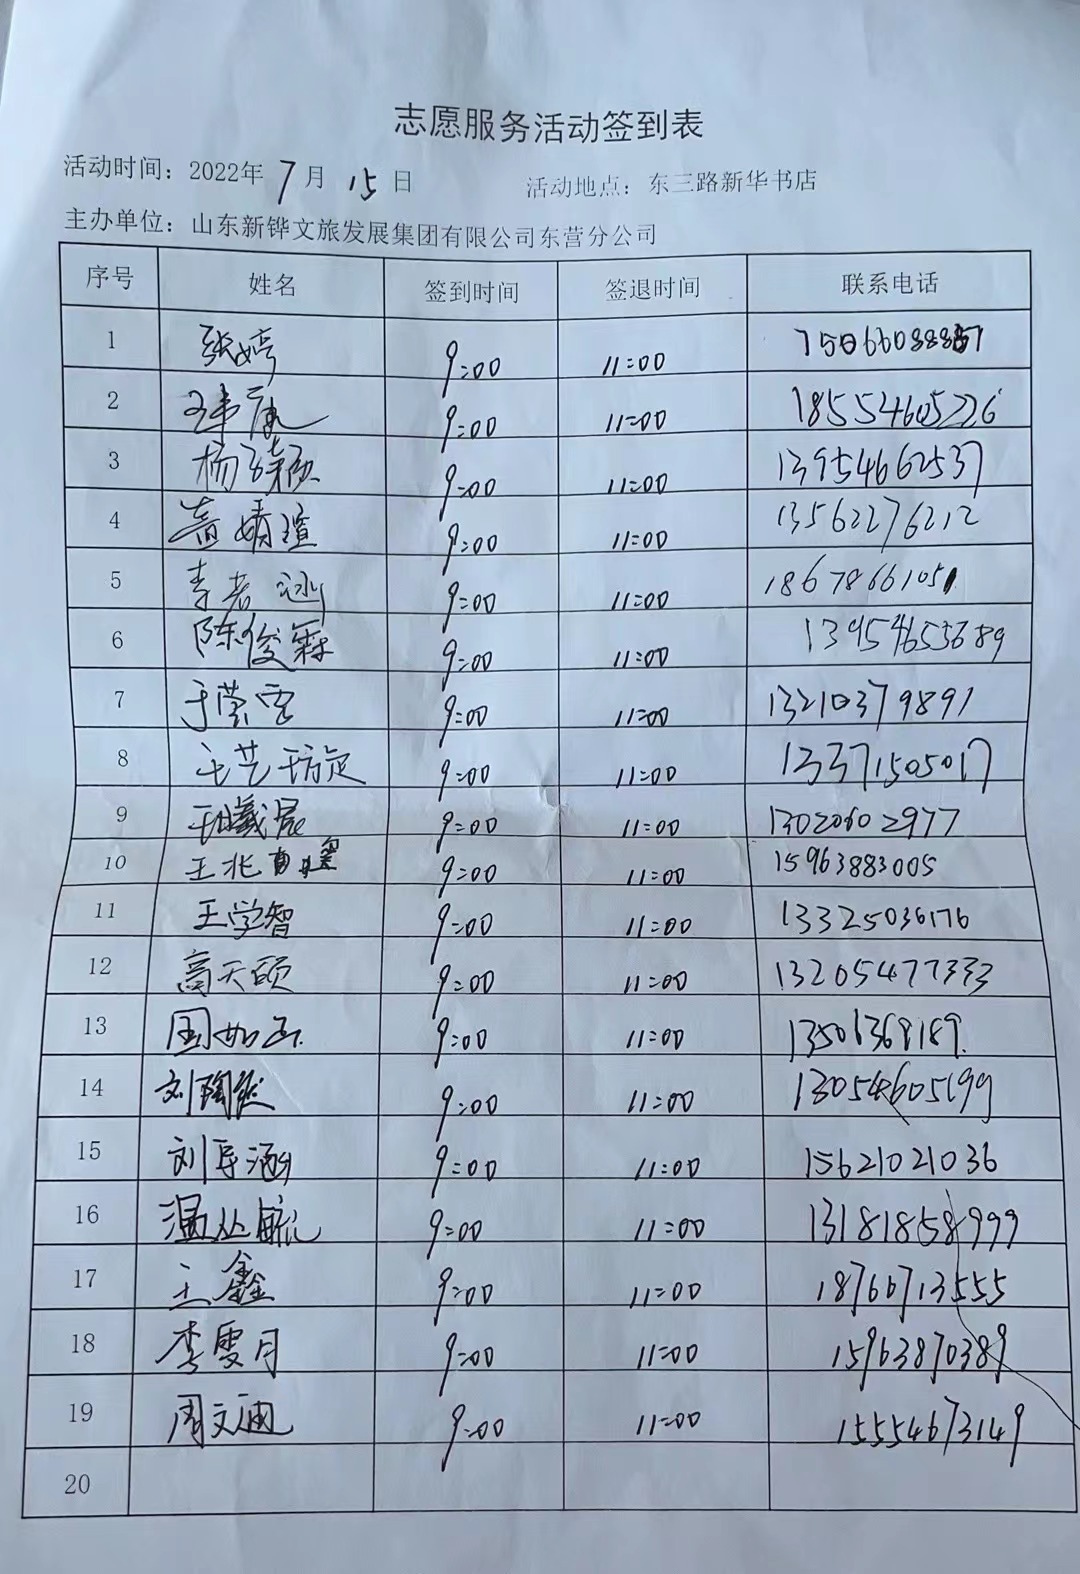 志愿服务活动签到表
活动时间：2022年7月15日 活动地点：东三路新华书店
主办单位：山东新铧文旅发展集团有限公司东营分公司
序号 姓名 签到时间 签退时间 联系电话
1 张婷 9:00 11:00
2 9:00 11:00 18554605226
3 杨 9:00 11:00 13954662537
4 婧瑄 9:00 11:00 13562276212
5 李 9:00 11:00 18678661051
6 陈俊霖 9:00 11:00
7 于 9:00 11:00 13210379891
8 王艺 9:00 11:00 13371505017
9 9:00 11:00 13020602977
10 王兆 9:00 11:00 15963883005
11 王学智 9:00 11:00 13325036176
12 高天硕 9:00 11:00 13205477333
13 周如 9:00 11:00
14 刘陶然 9:00 11:00 13054605199
15 刘 涵 9:00 11:00 15621021036
16 温 9:00 11:00 13181858999
17 王鑫 9:00 11:00 18766713555
18 李雯月 9:00 11:00 15963870389
19 周文迪 9:00 11:00 15554673149
20